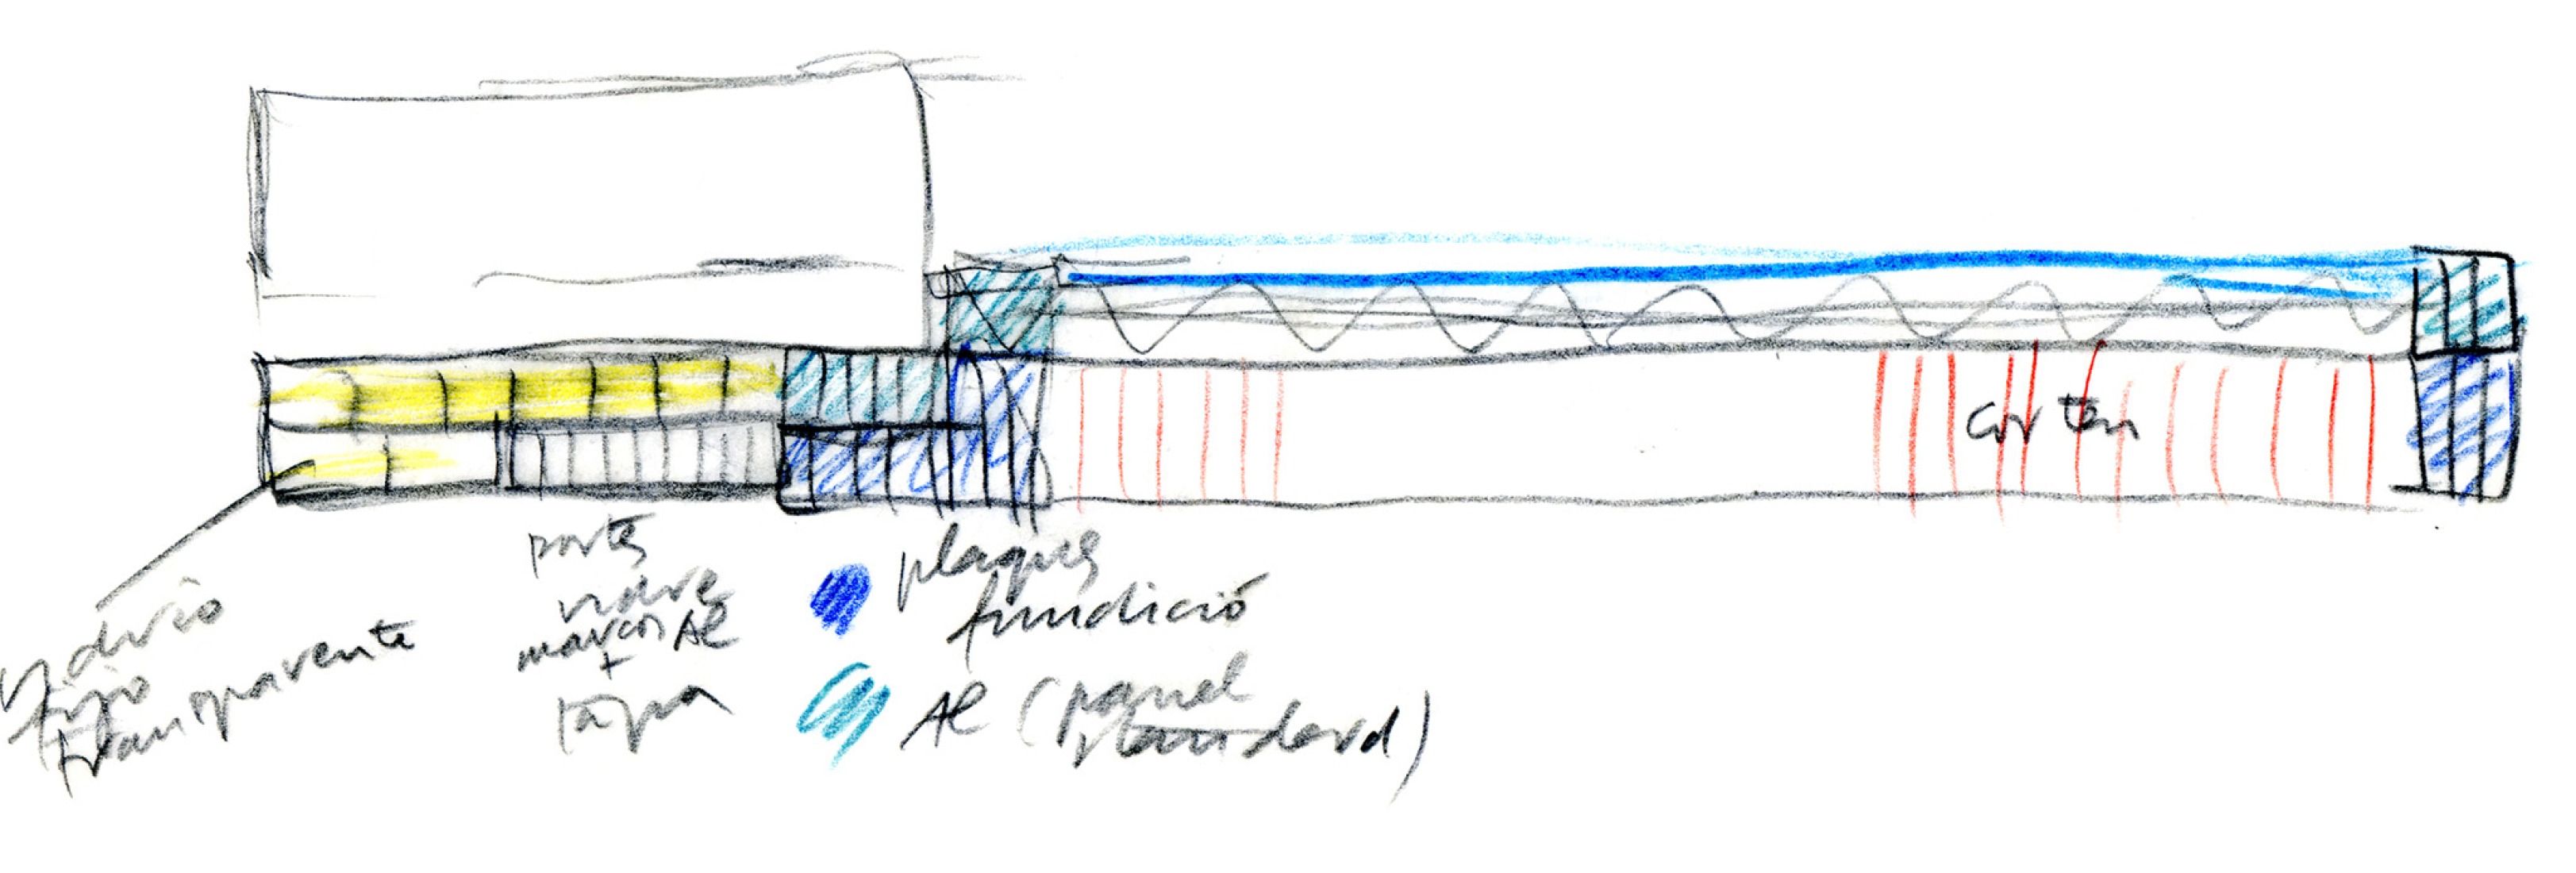 corten
vidrio
fijo
transparente
portes
vidre
marcos Al
+
tapa
plaques
fundició
Al (panel
standard)